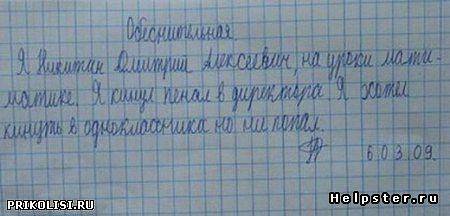 Обеснительная
Я Никитин Дмитрий Алексеевич, на уроки мати-
матике. Я кинул пенал в директора. Я хотел
кинуть в однокласника но не попал.
6.03.09.
PRIKOLISI.RU
Helpster.ru